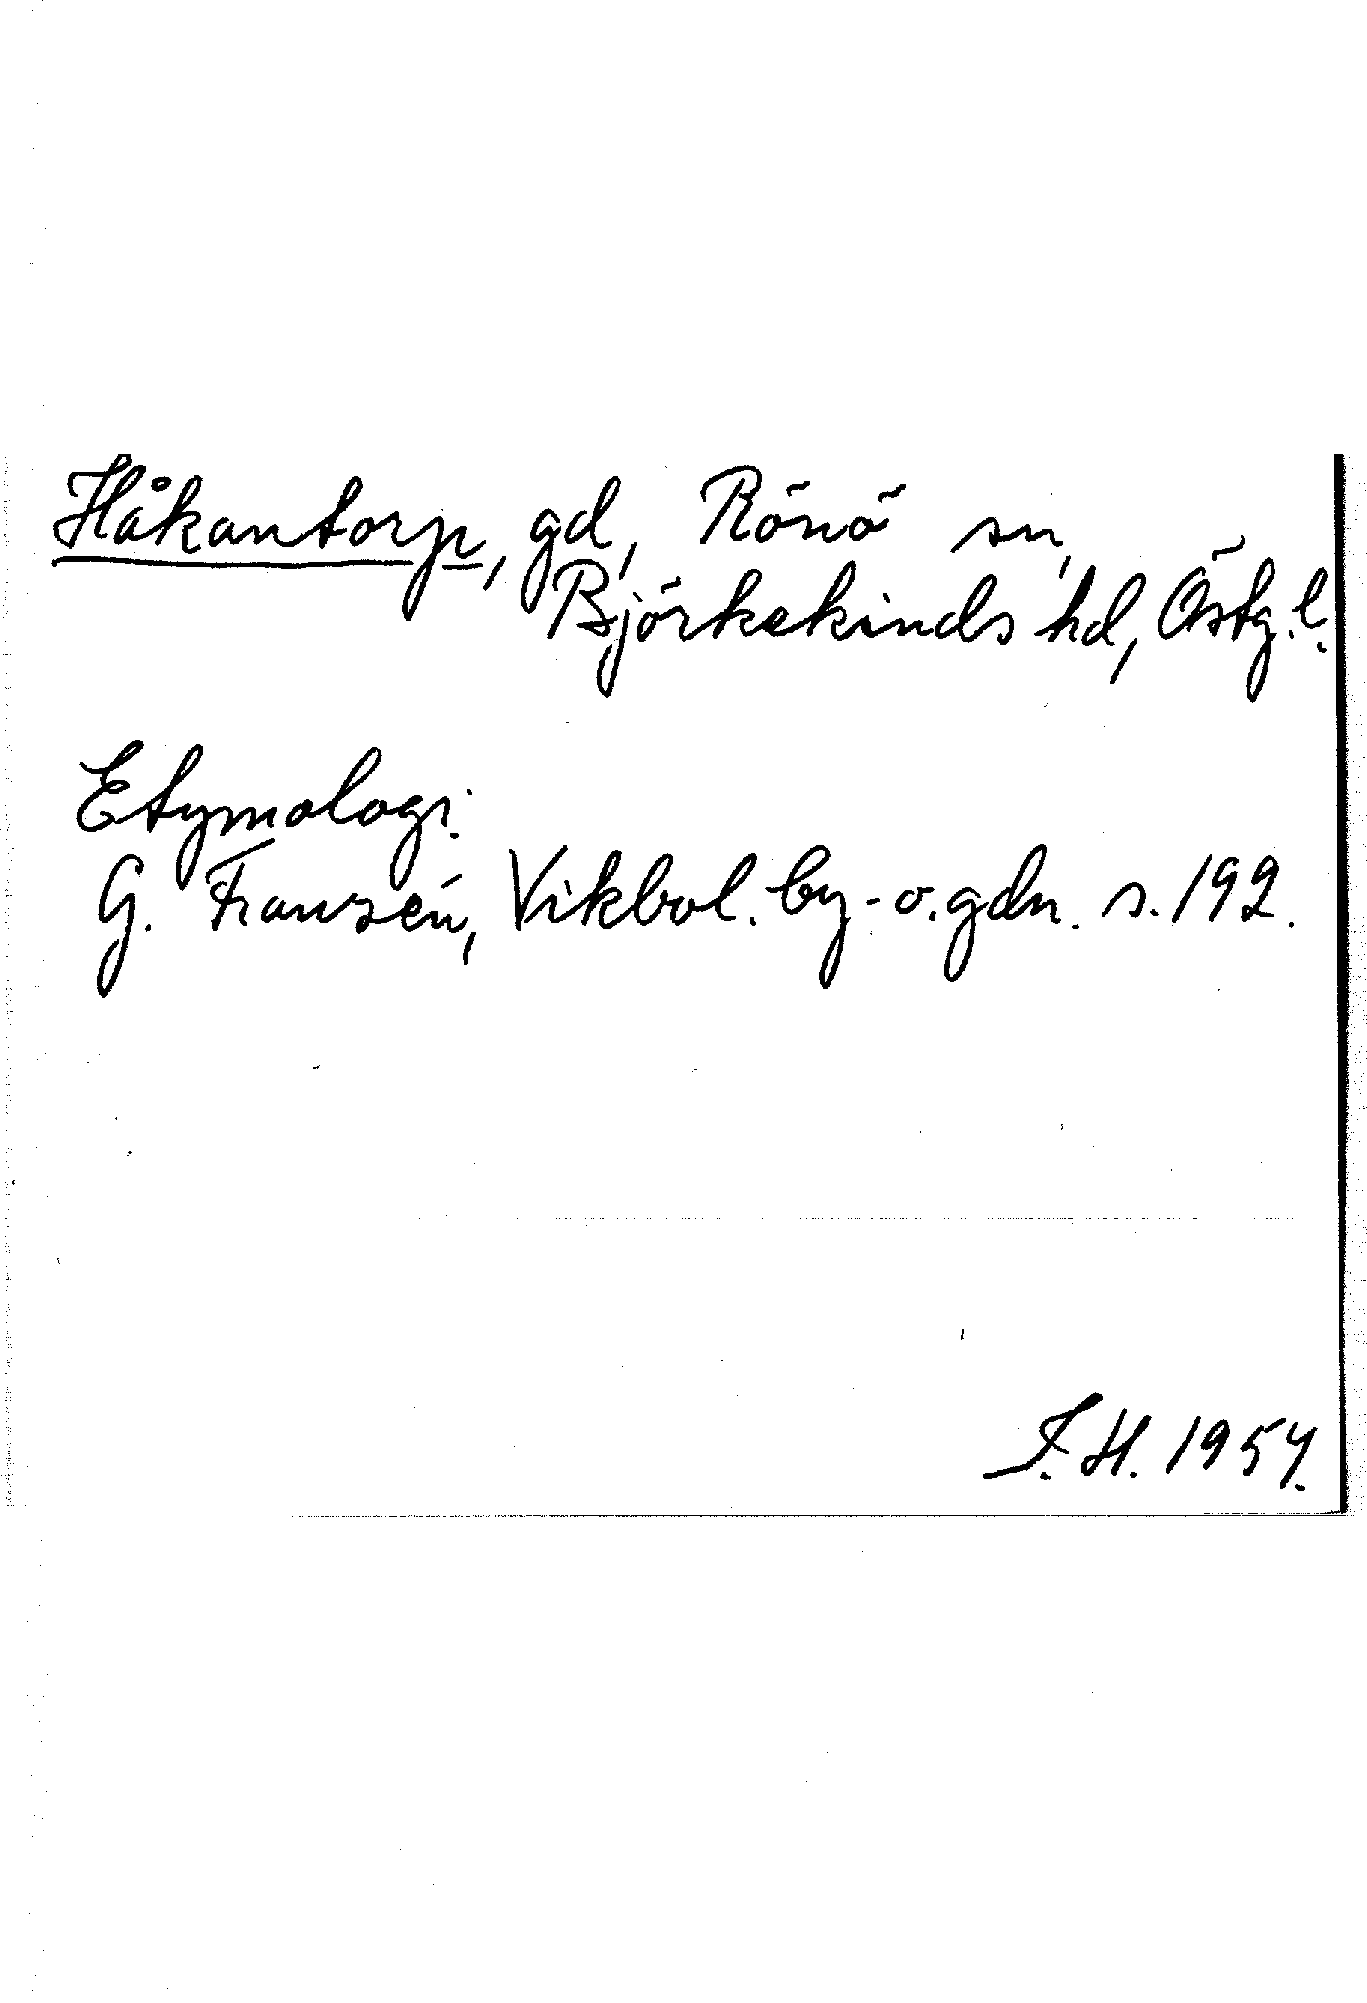 Håkantorp, gd, Rönö sn,
Björkekinds hd, Östg. l.
Etymologi.
G. Franzén, Vikbol. by- o. gdn. s. 192.
F. H. 1954.